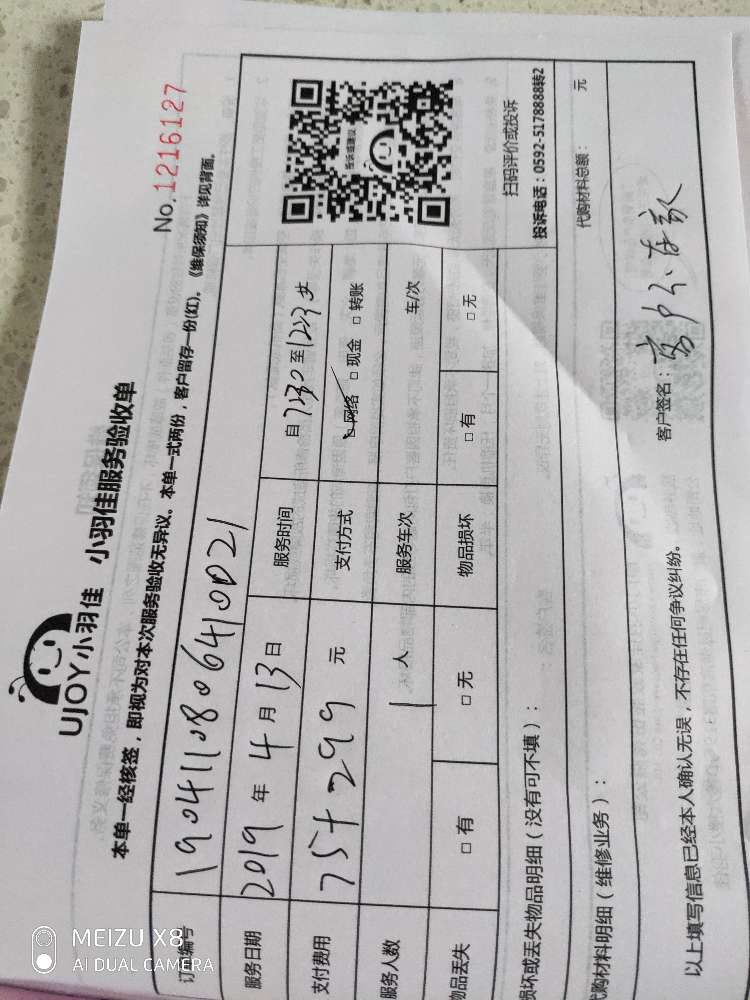 UJOY小羽佳 小羽佳服务验收单
No.1216127
本单一经核签，即视为对本次服务验收无异议。本单一式两份，客户留存一份(红)。《维保须知》详见背面。
订单编号 190411806410021
服务日期 2019 年 4 月 13 日 服务时间 自 1230 至 1233
支付费用 75+299 元 支付方式 ☑ 网络 □ 现金 □ 转账
服务人数 1 人 服务车次 车/次
物品丢失 □ 有 □ 无 物品损坏 □ 有 □ 无
投诉或建议
扫码评价或投诉
投诉电话：0592-5178888转2
损坏或丢失物品明细（没有可不填）：
代购材料明细（维修业务）： 代购材料总额： 元
以上填写信息已经本人确认无误，不存在任何争议纠纷。 客户签名：客户不在家
MEIZU X8
AI DUAL CAMERA